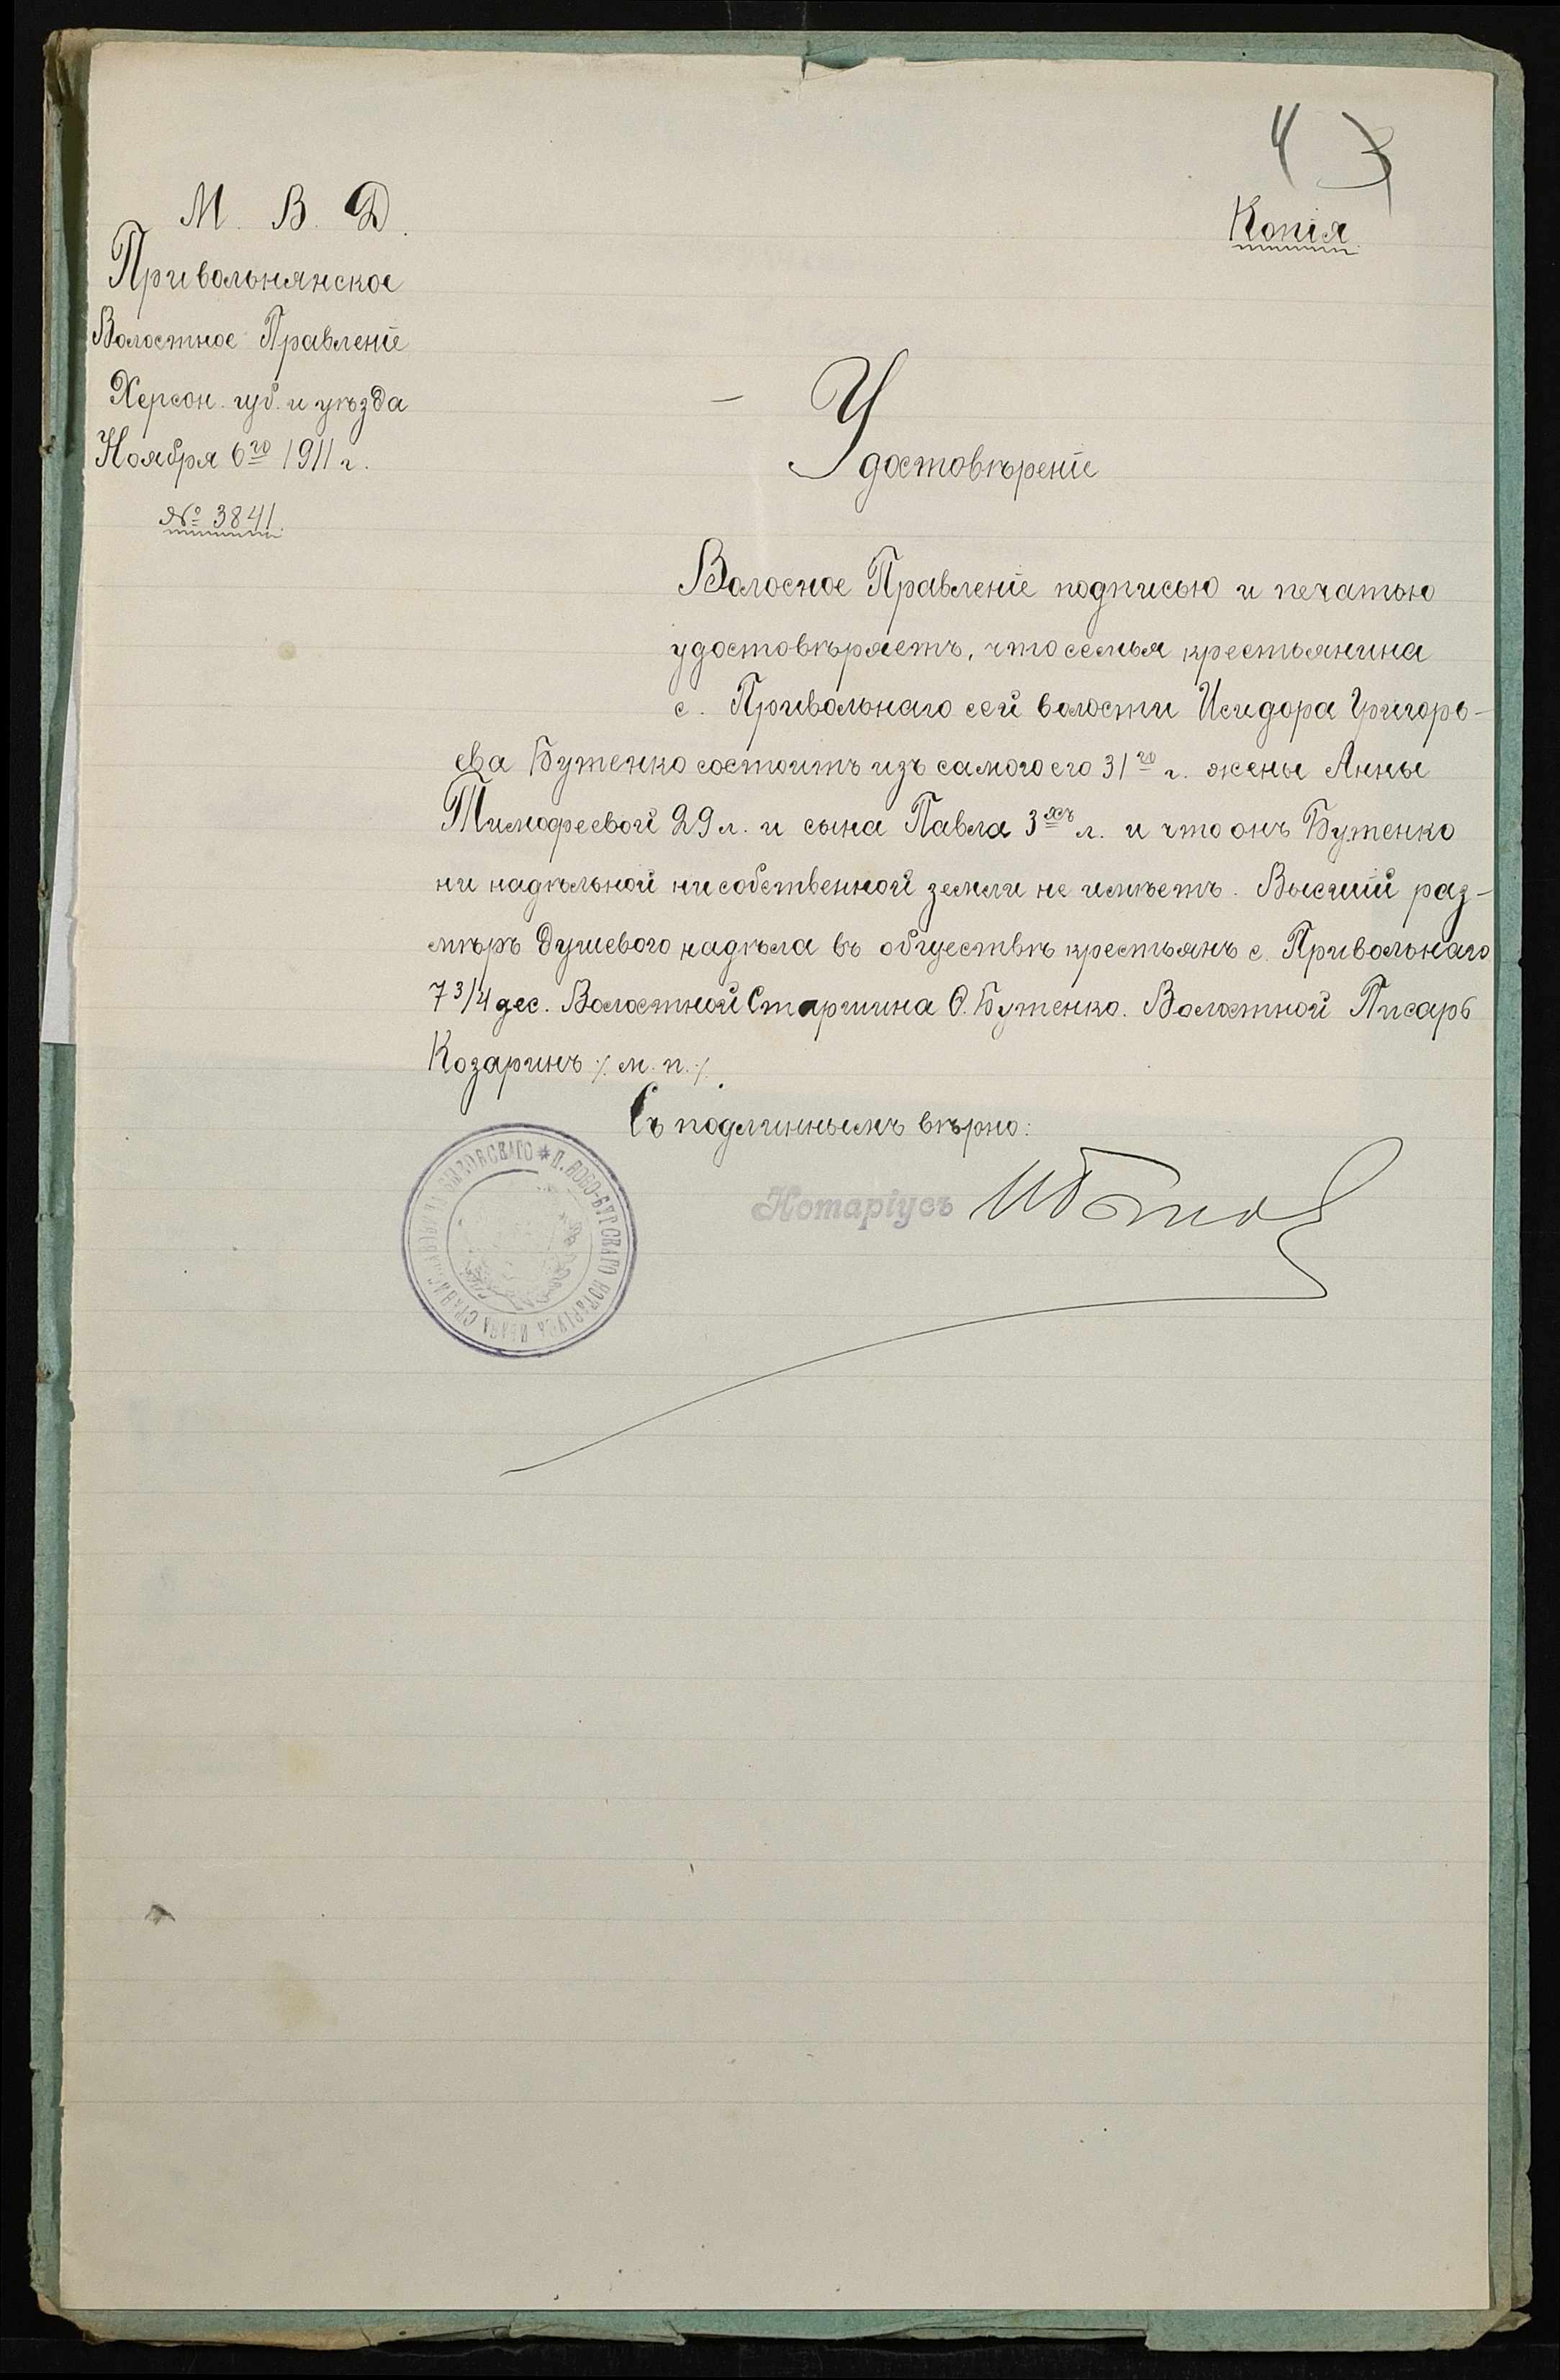 4 3
Копія
М. В. Д.
Привольнянское
Волостное Правленіе
Херсон. губ. и уѣзда
Ноября 6го 1911 г.
№ 3841.
Удостовѣреніе
Волосное Правленіе подписью и печатью
удостовѣряетъ, что семья крестьянина
с. Привольнаго сей волости Исидора Григорь-
ева Бутенко состоитъ изъ самого его 31го г. жены Анны
Тимофеевой 29 л. и сына Павла 3хъ л. и что онъ Бутенко
ни надѣльной ни собственной земли не имѣетъ. Высшій раз-
мѣръ душевого надѣла въ обществѣ крестьянъ с. Привольнаго
7 3/4 дес. Волостной Старшина О. Бутенко. Волостной Писарь
Козаринъ /. м. п. ./.
Съ подлиннымъ вѣрно:
Нотаріусъ
* П. НОВО-БУГСКАГО НОТАРІУСА ИВАНА